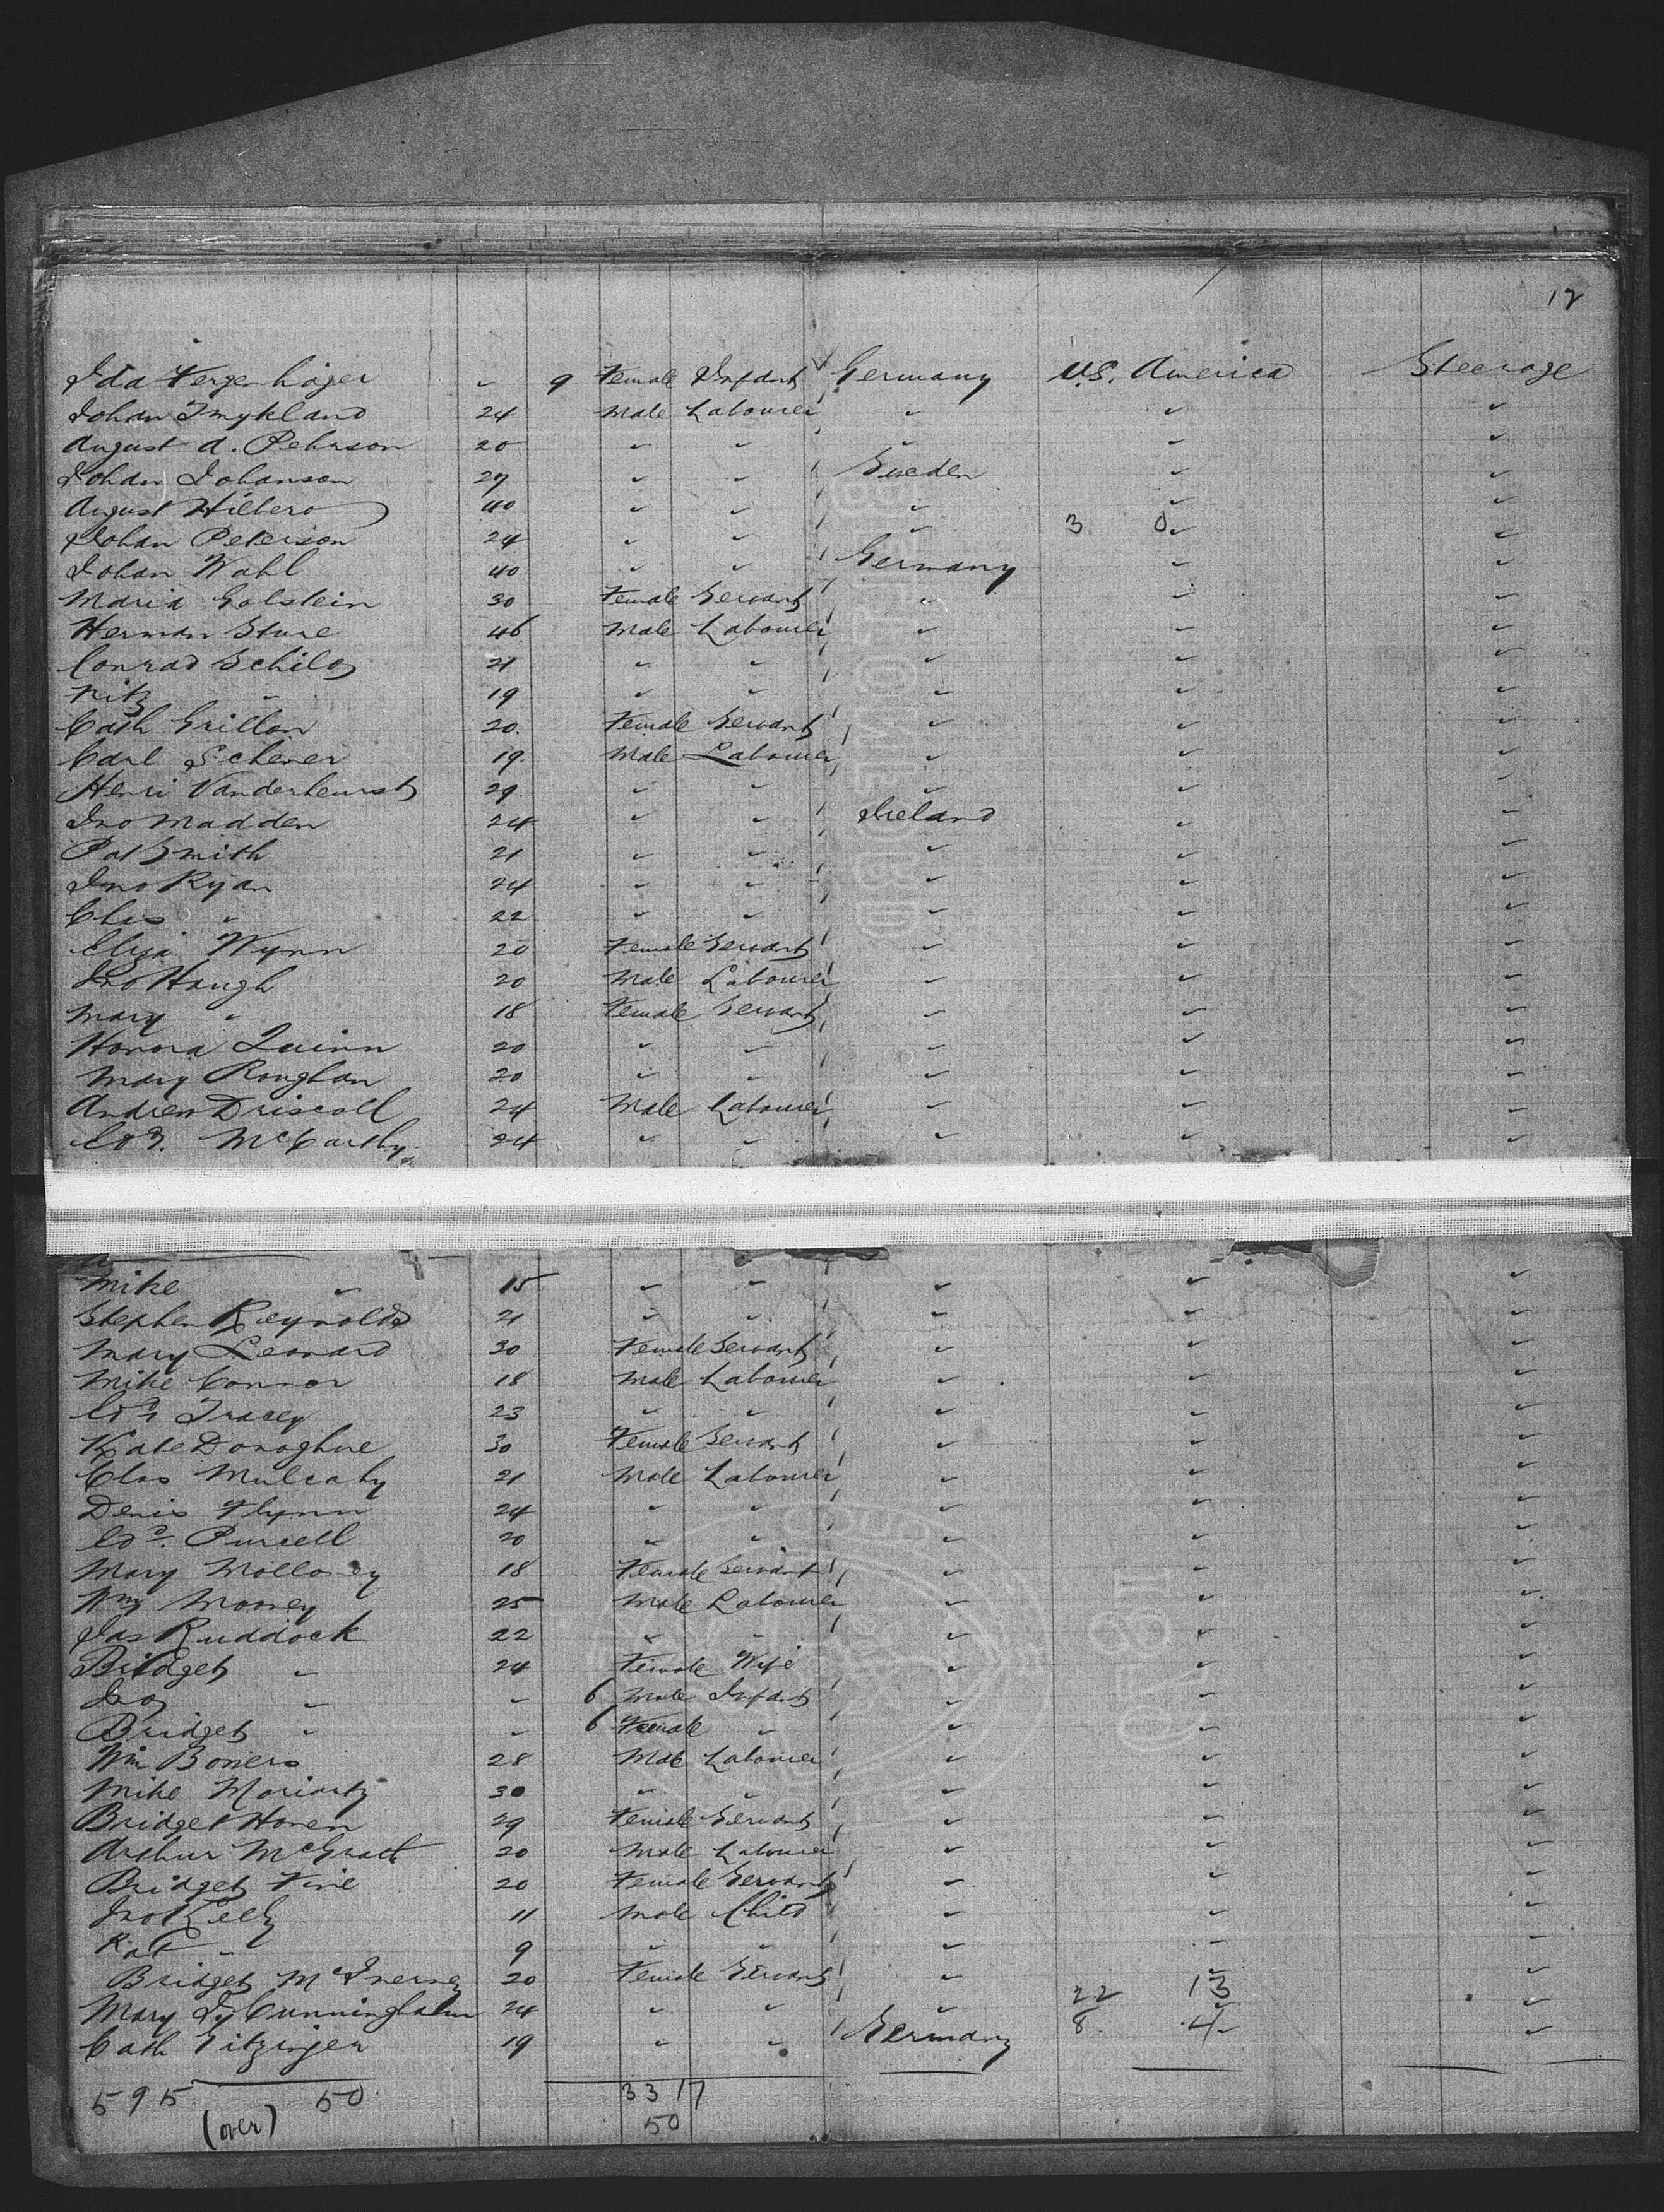 12
Ida Fergenhager " 9 Female Infant Germany U.S. America Steerage
Johan Tmykland 24 Male Labourer " " "
August A. Pehrson 20 " " " " "
Johan Johanson 27 " " Sweden " "
August Hilbero 40 " " " " "
Johan Peterson 24 " " " 3 0 " "
Johan Wahl 40 " " Germany " "
Maria Golstein 30 Female Servant " " "
Herman Sture 46 Male Labourer " " "
Conrad Schild 21 " " " " "
Fritz " 19 " " " " "
Cath Grillon 20. Female Servant " " "
Carl Scherer 19. Male Labourer " " "
Henri Vanderheurst 29. " " " " "
Jno Madden 24 " " Ireland " "
Pat Smith 21 " " " " "
Jno Ryan 24 " " " " "
Chas " 22 " " " " "
Eliza Wynn 20 Female Servant " " "
Jno Haugh 20 Male Labourer " " "
Mary " 18 Female Servant " " "
Honora Quinn 20 " " " " "
Mary Roughan 20 " " " " "
Andrew Driscoll 24 Male Labourer " " "
Edd. McCarthy 24 " " " " "
Mike " 15 " " " " "
Stephen Reynolds 21 " " " " "
Mary Leonard 30 Female Servant " " "
Mike Connor 18 Male Labourer " " "
Edd Tracey 23 " " " " "
Kate Donoghue 30 Female Servant " " "
Chas Mulcahy 21 Male Labourer " " "
Denis Flynn 24 " " " " "
Edd. Purcell 20 " " " " "
Mary Molloney 18 Female Servant " " "
Wm Mooney 25 Male Labourer " " "
Jas Ruddock 22 " " " " "
Bridget " 24 Female Wife " " "
Jno " " 6 Male Infant " " "
Bridget " " 6 Female " " " "
Wm Bowers 28 Male Labourer " " "
Mike Moriarty 30 " " " " "
Bridget Horen 29 Female Servant " " "
Arthur McGrath 20 Male Labourer " " "
Bridget Fine 20 Female Servant " " "
Jno Kelly 11 Male Child " " "
Pat " 9 " " " " "
Bridget McInerney 20 Female Servant " " "
22 13
Mary J. Cunningham 24 " " " " "
8 4
Cath Gitzinger 19 " " Germany " "
595 50 33 17
(over) 50